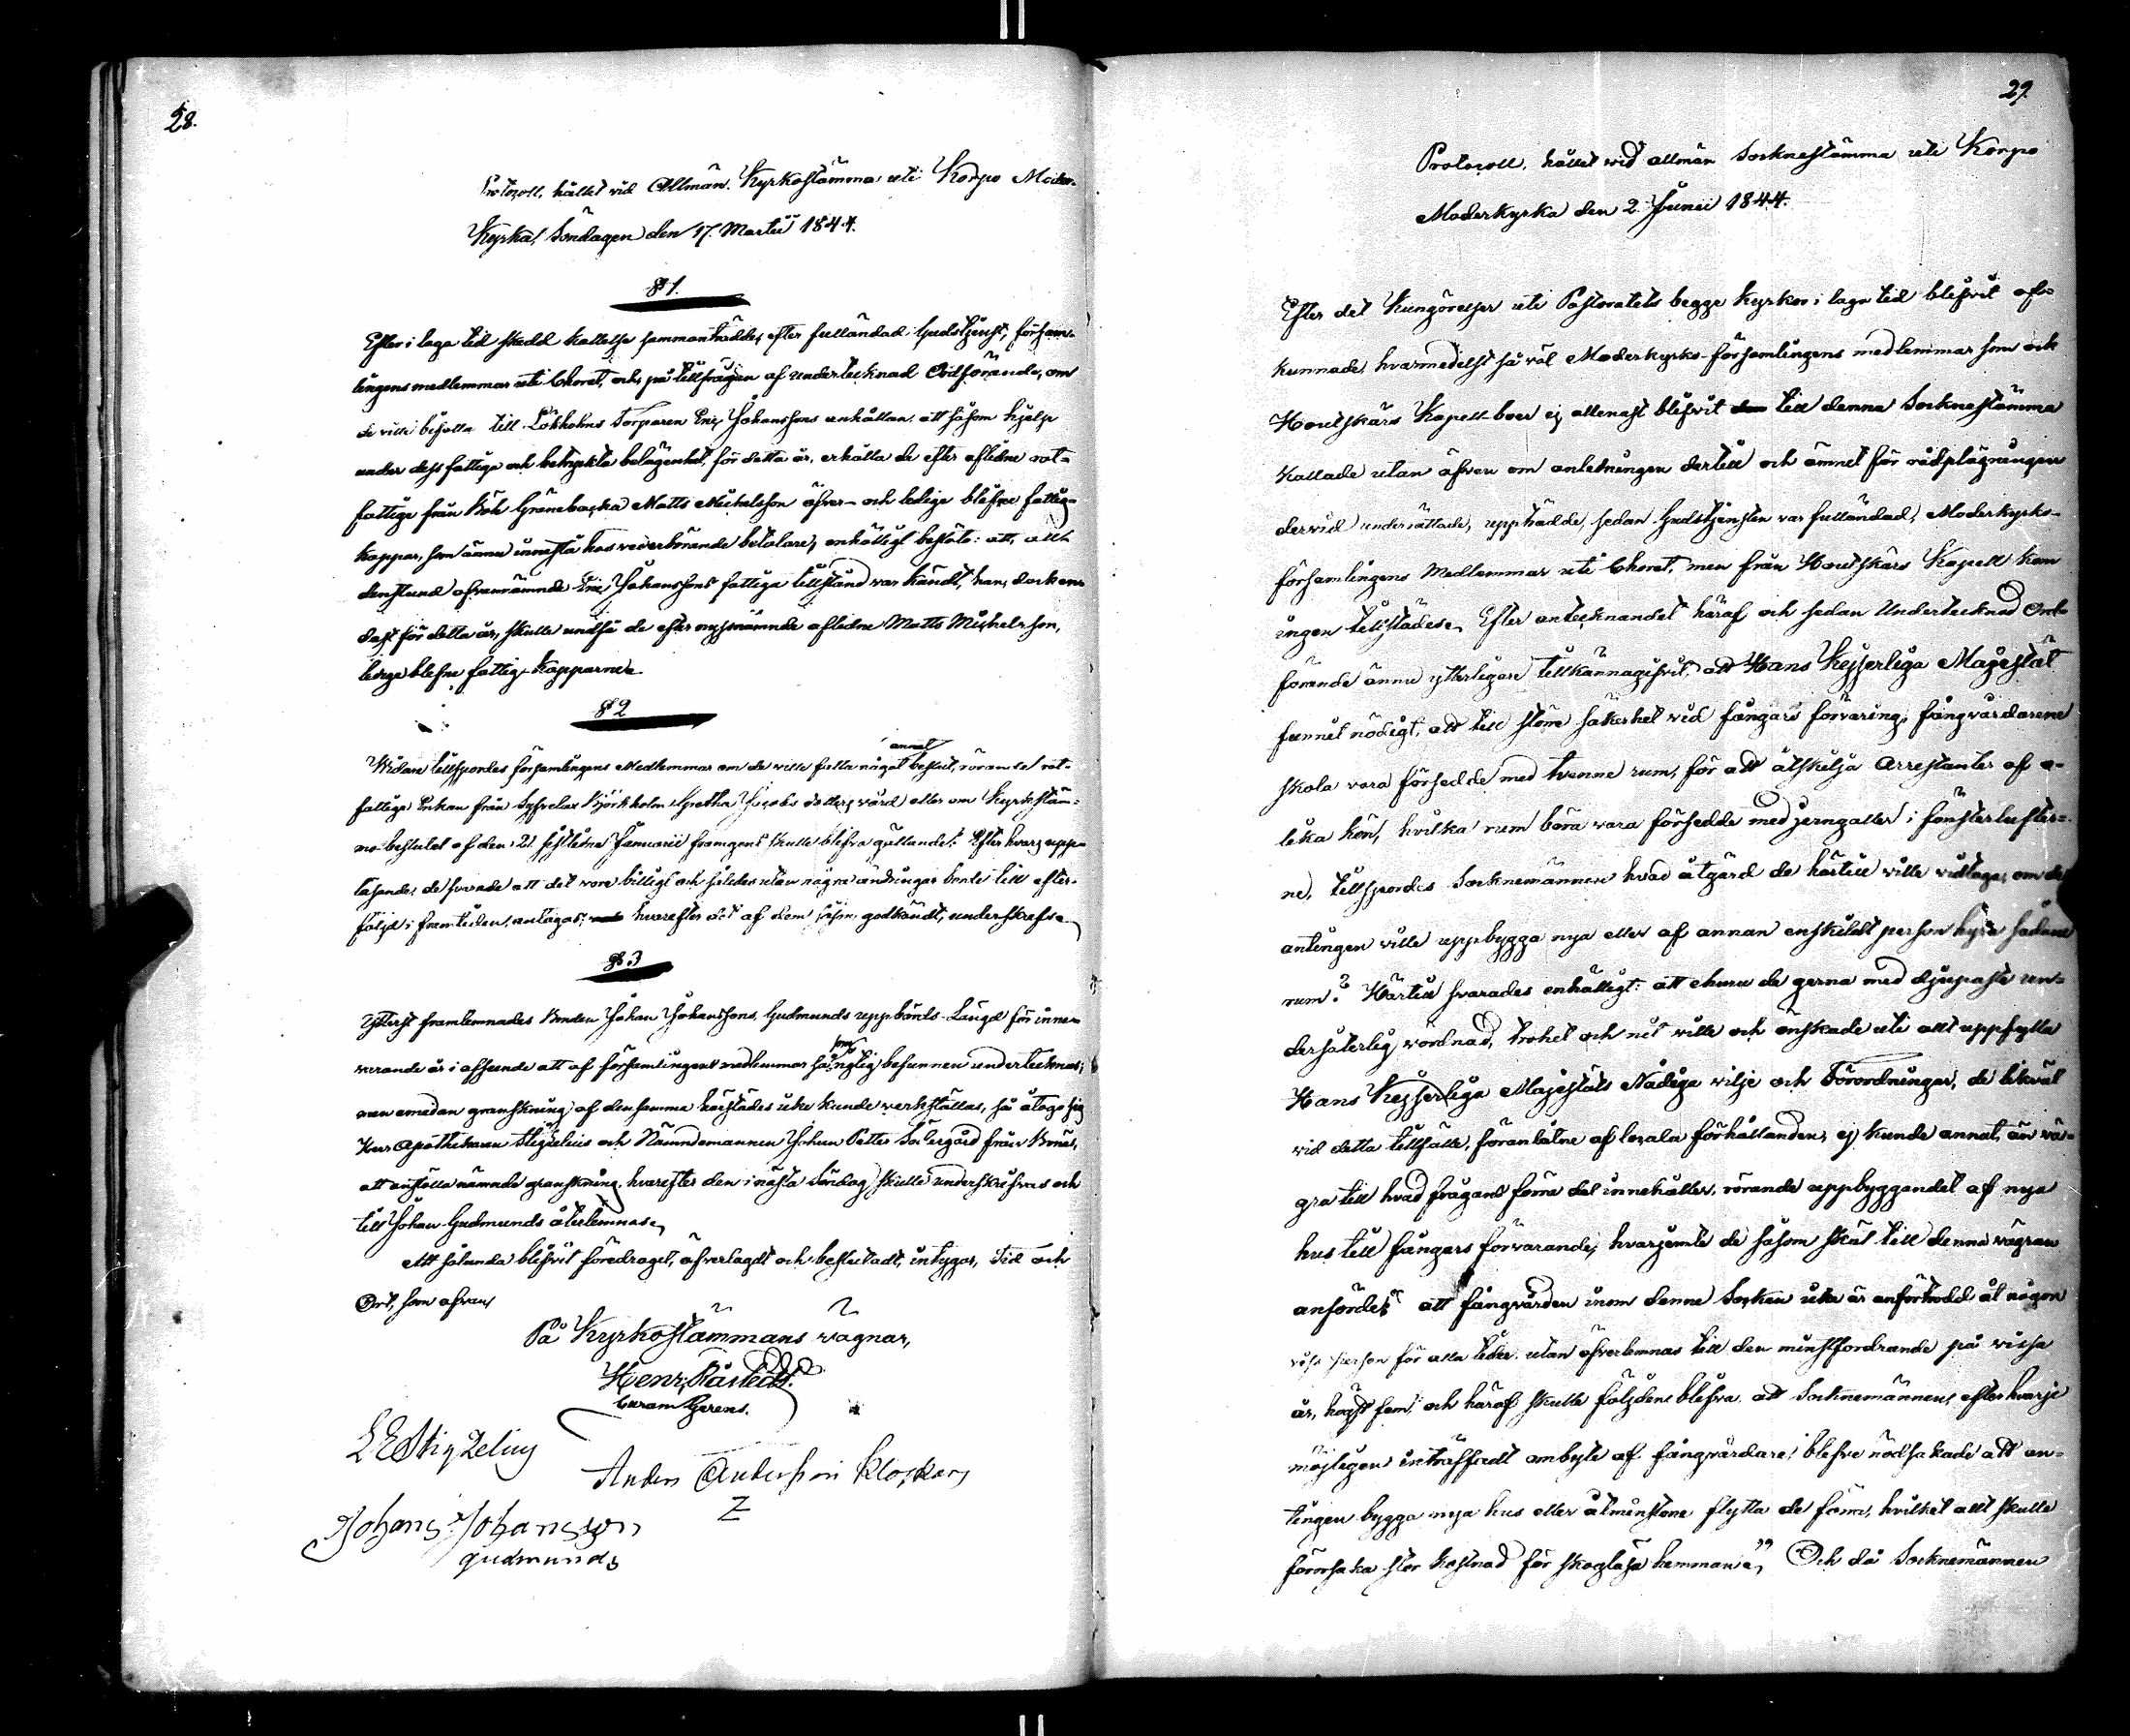 28.
Protocoll, hållet vid Allmän Kyrkostämma uti Korpo Moder-
Kyrka, Söndagen den 17. Martii 1844.
§ 1.
Efter i laga tid skedd kallelse sammanträdde, efter fulländad Gudstjenst, försam-
lingens medlemmar uti Choret, och, på tillfrågan af undertecknad Ordförande, om
de ville bifalla till Lökholms Torparen Eric Johanssons anhållan, att såsom hjelp
under dess fattiga och betryckta belägenhet, för detta år, erhålla de efter aflidne rot-
fattige från Böle Grännebacka Matts Michelsson öfver- och ledige blefne fattig-
kappar, som ännu innestå hos vederbörande betalare, enhälligt beslöto: att, allt
denstund ofvannämnde Eric Johanssons fattiga tillstånd var kändt, han, dock en-
dast för detta år, skulle undfå de efter nyssnämnde aflidne Matts Michelsson,
ledige blefne fattig-kapparne.
§ 2
Widare tillspordes församlingens Medlemmar om de ville fatta något annat beslut, rörande rot-
fattiga Enkan från Björkholm Gretha Jacobs dotters vård eller om Kyrkstäm-
mo beslutet af den 21. sistledne Januarii framgent skulle blifva gällande? Efter hvars upp-
läsande, de svarade att det vore billigt och således utan några ändringar borde till efter-
följd i framtiden antagas; hvarefter det af dem, godkändt, underskrefs.
§ 3
Ytterst framlemnades Bonden Johan Johanssons Gudmunds uppbörds-Längd för inne-
varande år i afseende att af församlingens medlemmar såsom riktig befunnen undertecknas;
men emedan granskning af densamma härstädes icke kunde verkställas, så åtogo sig
Herr Apothekaren Stigzelius och Nämndemannen Johan Petter Södergård från
att anställa nämnde granskning, hvarefter den i nästa Söndag skulle underskrifvas och
till Johan Gudmunds återlemnas.
Att sålunda blifvit föredraget, öfverlagdt och beslutadt, intygar, Tid och
Ort, som ofvan,
På Kyrkostämmans vägnar,
Henr. Råstedt.
Curam Gerens.
L E Stigzelius
Anders Andersson Klockars
Johans Johansson
gudmunds
29.
Protocoll, hållet wid allmän Socknestämma uti Korpo
Moderkyrka den 2. Junii 1844.
Efter det Kungörelser uti Pastoratets begge Kyrkor i laga tid blifvit af-
kunnade, hvarmedelst så väl Moderkyrko-församlingens medlemmar som ock
Houtskärs Kapell-boer ej allenast blifvit till denna Socknestämma
kallade utan äfven om anledningen dertill och ämnet för rådplägningen
dervid underrättade, uppträdde, sedan Gudstjensten var fulländad, Moderkyrko-
församlingens Medlemmar uti Choret, men från Houtskärs Kapell kom
ingen tillstädes. Efter antecknandet häraf och sedan Undertecknad Ord-
förande ännu ytterligare tillkännagifvit, att Hans Kejserliga Majestät
funnit nödigt, att till större säkerhet vid fångars förvaring, fångvårdarene
skola vara försedde med tvenne rum, för att åtskilja Arrestanter af o-
lika kön, hvilka rum böra vara försedde med jerngaller i fönsterlufter-
ne, tillspordes Socknemännen hvad åtgärd de härtill ville vidtaga, om de
antingen ville uppbygga nya eller af annan enskildt person hyra sådane
rum? Härtill svarades enhälligt: att ehuru de gerna med djupaste un-
dersåterlig vördnad, trohet och nit ville och önskade uti allt uppfylla
Hans Kejserliga Majestäts Nådiga vilje och Förordningar, de likväl
vid detta tillfälle, föranlåtne af locala förhållanden, ej kunde annat, än vä-
gra till hvad frågans förra del innehåller, rörande uppbyggandet af nya
hus till fångars förvarande; hvarjemte de såsom skäl till denna vägran
anförde: " att fångvården inom denne Socken icke är anförtrodd åt någon
viss person för alla tider, utan öfverlemnas till den minstfordrande på vissa
år, högst fem, och häraf skulle följden blifva att Socknemännen, efter hvarje
möjligen inträffadt ombyte af fångvårdare, blefve nödsakade att an-
tingen bygga nya hus eller åtminstone flytta de förra, hvilket allt skulle
förorsaka stor kostnad för skoglösa hemman." Och då Socknemännen